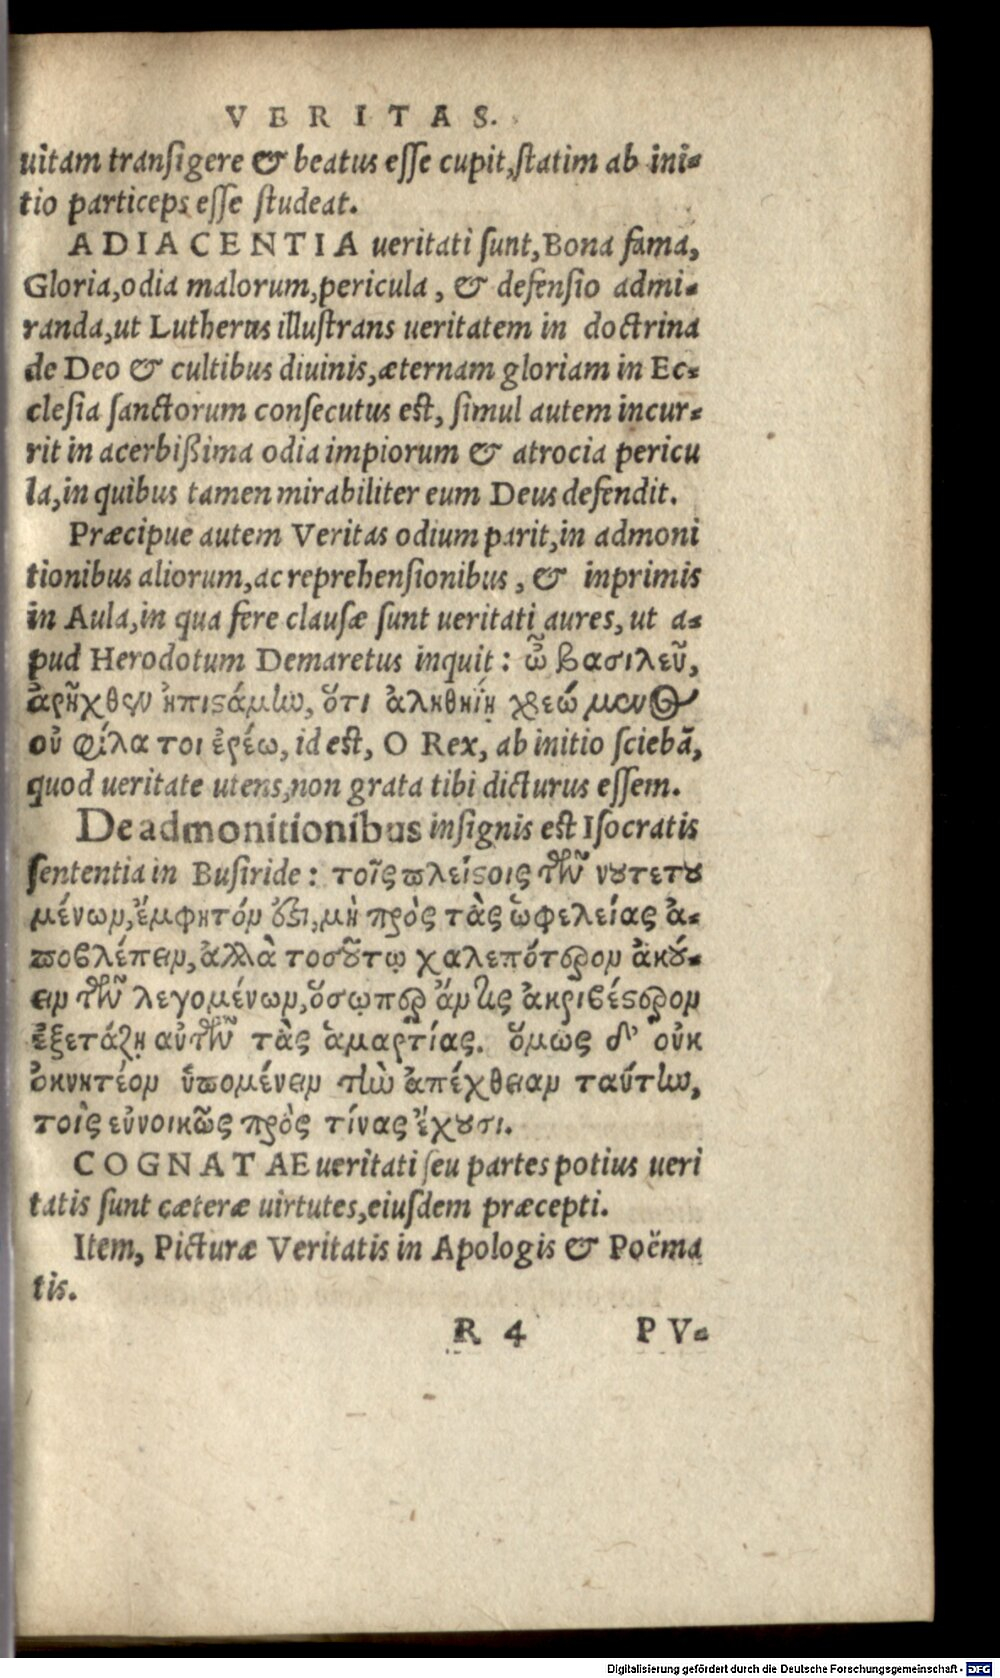 VERITAS.
uitam transigere & beatus esse cupit, statim ab ini-
tio particeps esse studeat.
ADIACENTIA ueritati sunt, Bona fama,
Gloria, odia malorum, pericula, & defensio admi-
randa, ut Lutherus illustrans ueritatem in doctrina
de Deo & cultibus diuinis, æternam gloriam in Ec-
clesia sanctorum consecutus est, simul autem incur-
rit in acerbißima odia impiorum & atrocia pericu
la, in quibus tamen mirabiliter eum Deus defendit.
Præcipue autem Veritas odium parit, in admoni
tionibus aliorum, ac reprehensionibus, & inprimis
in Aula, in qua fere clausæ sunt ueritati aures, ut a-
pud Herodotum Demaretus inquit: ὦ βασιλεῦ,
ἀρῆχθεν ἠπιστάμην, ὅτι ἀληθηίῃ χρεώμενος
οὐ φίλα τοι ἐρέω, id est, O Rex, ab initio sciebā,
quod ueritate utens, non grata tibi dicturus essem.
De admonitionibus insignis est Isocratis
sententia in Busiride: τοῖς πλείστοις τῶν νουτετου
μένων, ἔμφητόν ἐστι, μὴ πρὸς τὰς ὠφελείας ἀ-
ποβλέπειν, ἀλλὰ τοσούτῳ χαλεπότερον ἀκού-
ειν τῶν λεγομένων, ὅσῳπερ ἄν τις ἀκριβέστερον
ἐξετάζῃ αὐτῶν τὰς ἁμαρτίας. ὅμως δ' οὐκ
ὀκνητέον ὑπομένειν τὴν ἀπέχθειαν ταύτην,
τοῖς εὐνοικῶς πρὸς τίνας ἔχουσι.
COGNATAE ueritati seu partes potius ueri
tatis sunt cæteræ uirtutes, eiusdem præcepti.
Item, Picturæ Veritatis in Apologis & Poëma
tis.
R 4 PV-
Digitalisierung gefördert durch die Deutsche Forschungsgemeinschaft - DFG